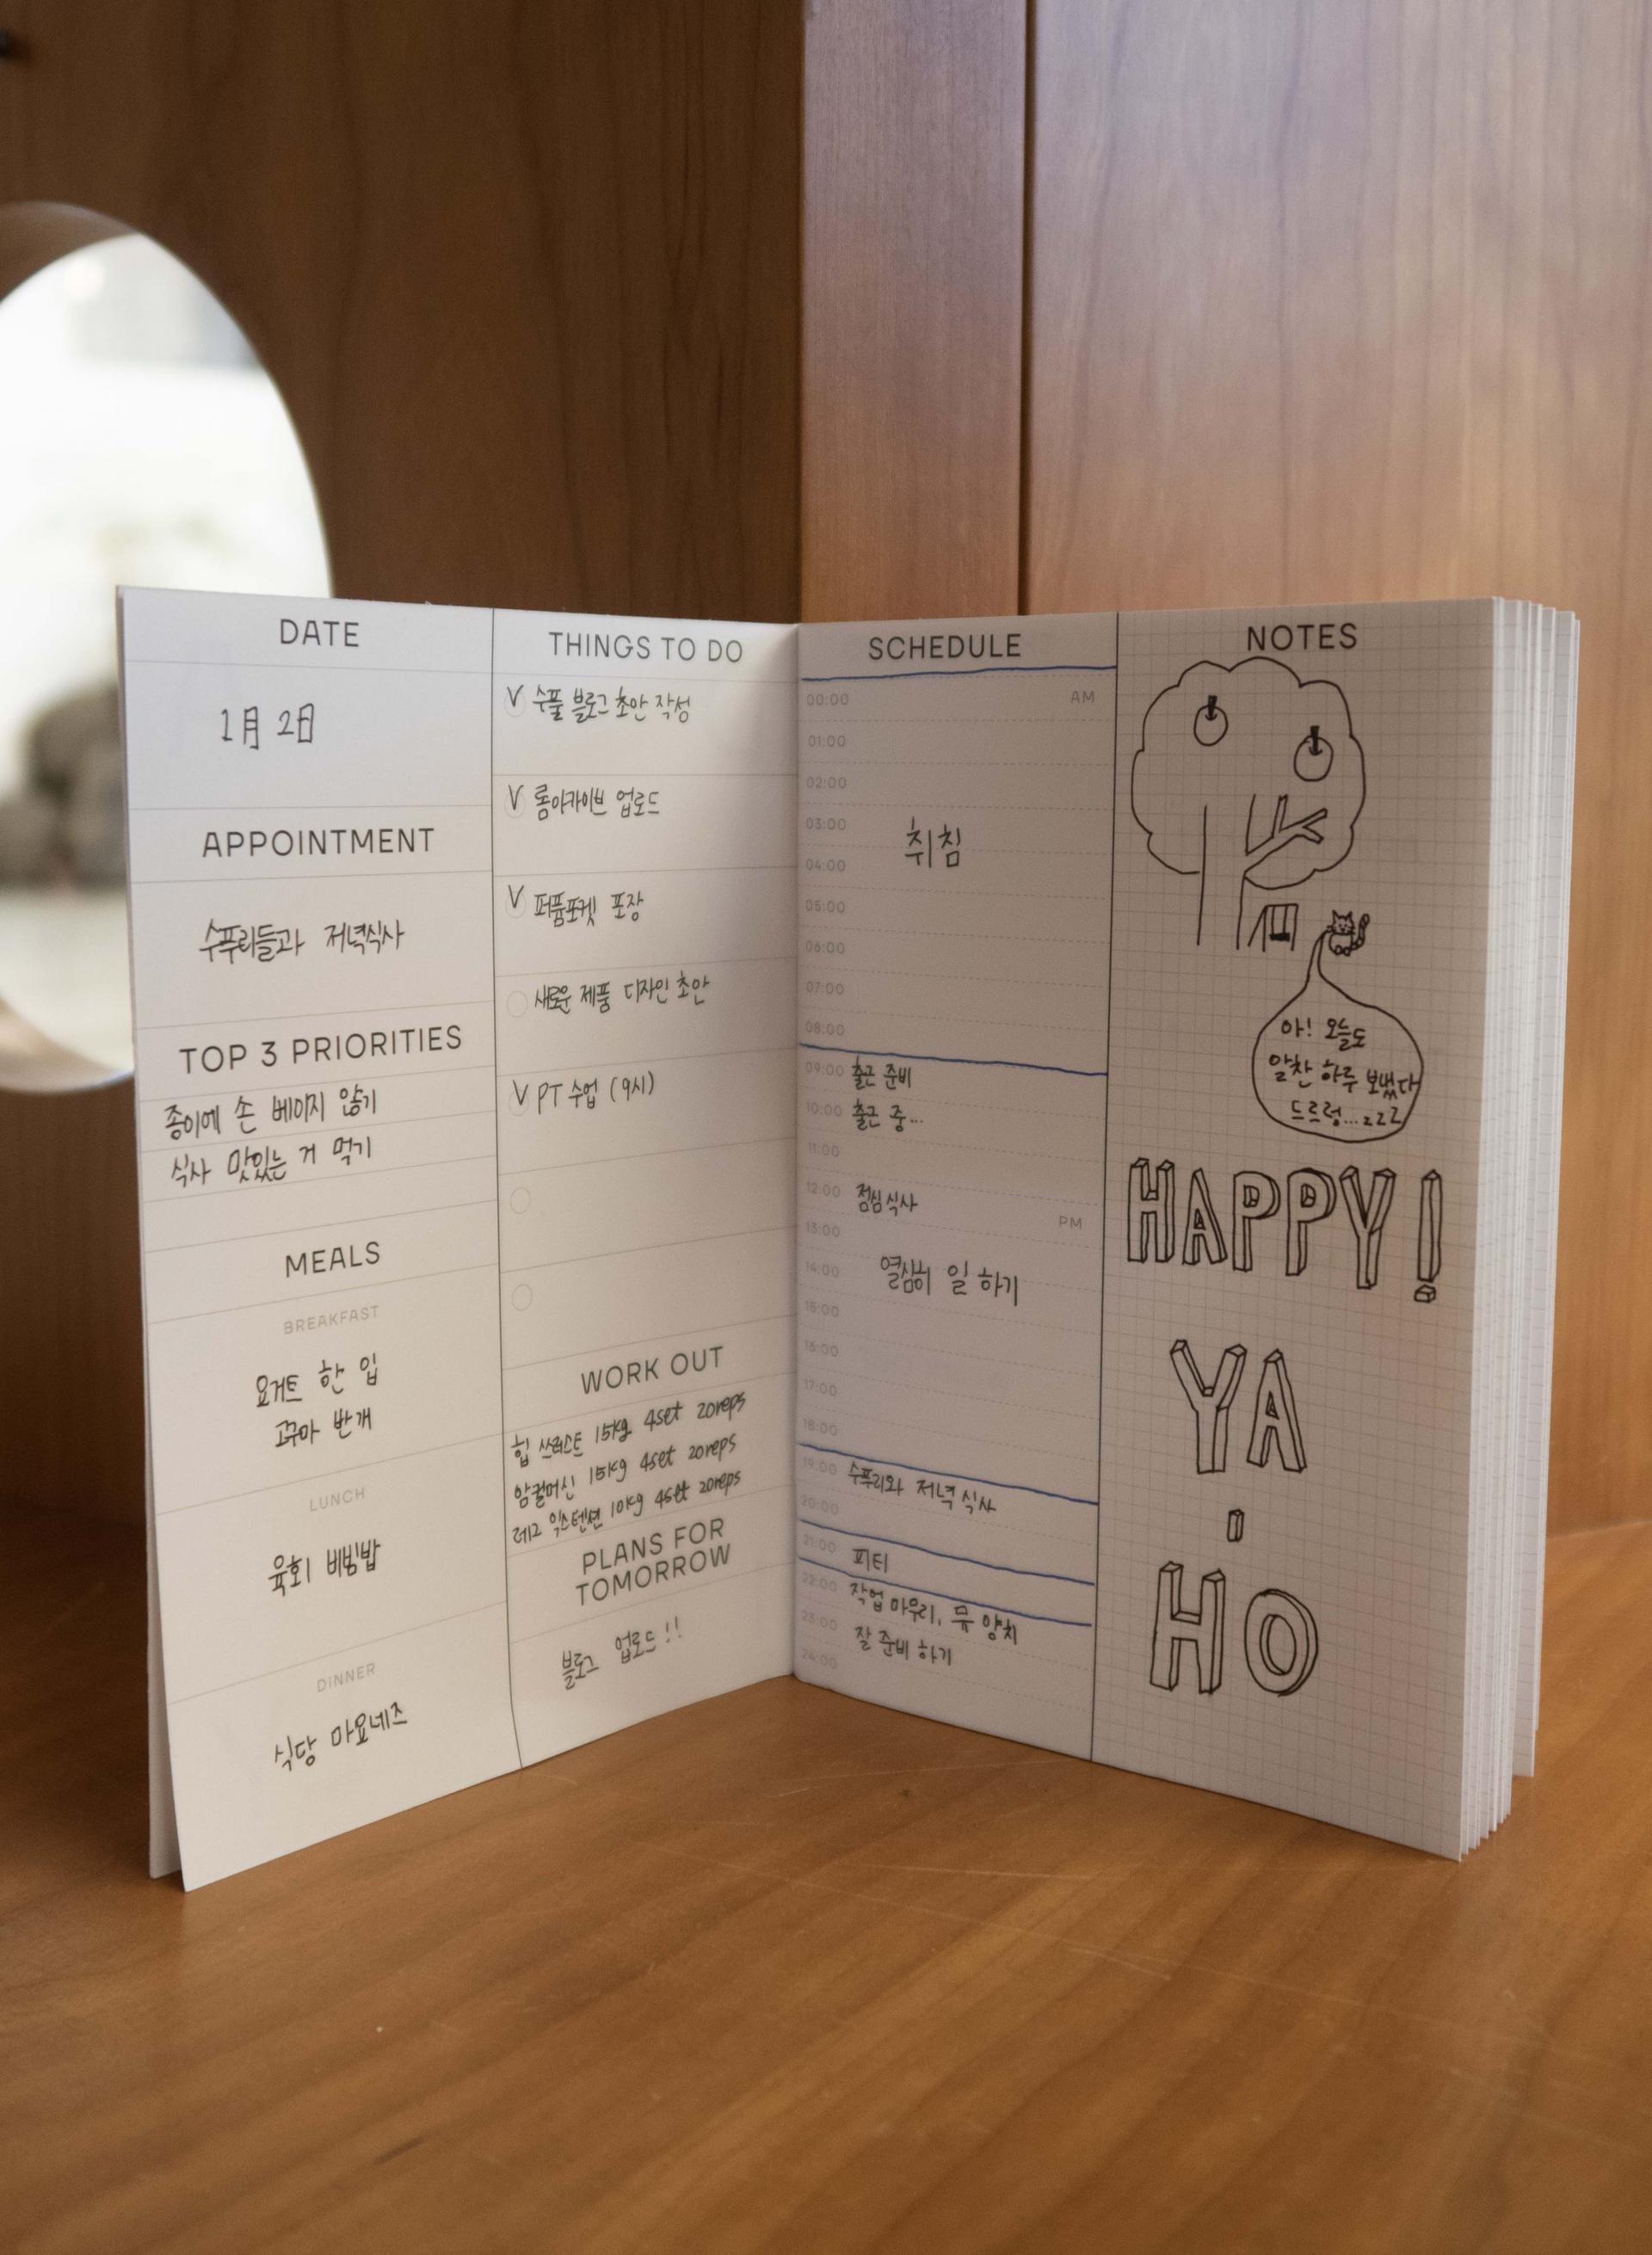 DATE
1月 2日
APPOINTMENT
수푸리들과 저녁식사
TOP 3 PRIORITIES
종이에 손 베이지 않기
식사 맛있는 거 먹기
MEALS
BREAKFAST
요거트 한 입
고구마 반 개
LUNCH
육회 비빔밥
DINNER
식당 마요네즈
THINGS TO DO
V 수풀 블로그 초안 작성
V 롬아카이브 업로드
V 퍼퓸포켓 포장
새로운 제품 디자인 초안
V PT 수업 (9시)
WORK OUT
힙 쓰러스트 15kg 4set 20reps
암컬머신 15kg 4set 20reps
레그 익스텐션 10kg 4set 20reps
PLANS FOR
TOMORROW
블로그 업로드!!
SCHEDULE
00:00 AM
01:00
02:00
03:00 취침
04:00
05:00
06:00
07:00
08:00
09:00 출근 준비
10:00 출근 중...
11:00
12:00 점심식사
PM
13:00
14:00 열심히 일 하기
15:00
16:00
17:00
18:00
19:00 수푸리와 저녁 식사
20:00
21:00 피티
22:00 작업 마무리, 뮤 양치
23:00 잘 준비 하기
24:00
NOTES
아! 오늘도
알찬 하루 보냈다
드르렁...zzZ
HAPPY!
YA
-
HO